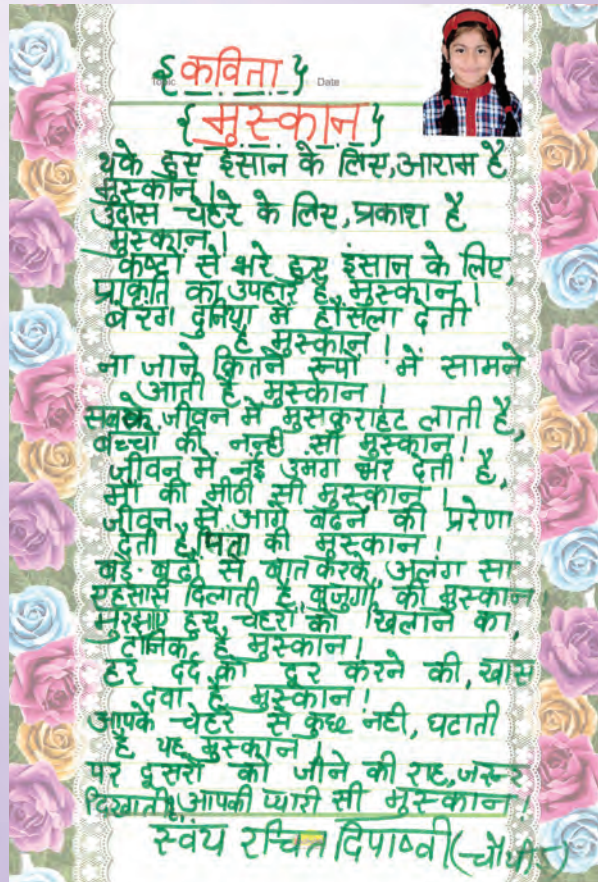 { कविता }
Topic Date
{ मुस्कान }
थके हुए इंसान के लिए, आराम है
मुस्कान।
उदास चेहरे के लिए, प्रकाश है
मुस्कान।
कष्टों से भरे हुए इंसान के लिए,
प्राकृति का उपहार है मुस्कान।
बेरंग दुनिया में हौंसला देती
है मुस्कान।
ना जाने कितने रूपों में सामने
आती है मुस्कान।
सबके जीवन में मुसकुराहट लाती है,
बच्चों की नन्ही सी मुस्कान।
जीवन में नई उमंग भर देती है,
माँ की मीठी सी मुस्कान।
जीवन में आगे बढने की प्ररेणा
देती है, पिता की मुस्कान।
बड़े-बूढों से बात करके, अलग सा
एहसास दिलाती है, बुजुर्गों की मुस्कान
मुरझाए हुए चेहरों को खिलाने का,
टॉनिक है मुस्कान।
हर दर्द को दूर करने की, खास
दवा है मुस्कान।
आपके चेहरे से कुछ नही, घटाती
है यह मुस्कान।
पर दूसरों को जीने की राह, जरूर
दिखाती, आपकी प्यारी सी मुस्कान।
स्वंय रचित दिपाण्वी (चौथी)